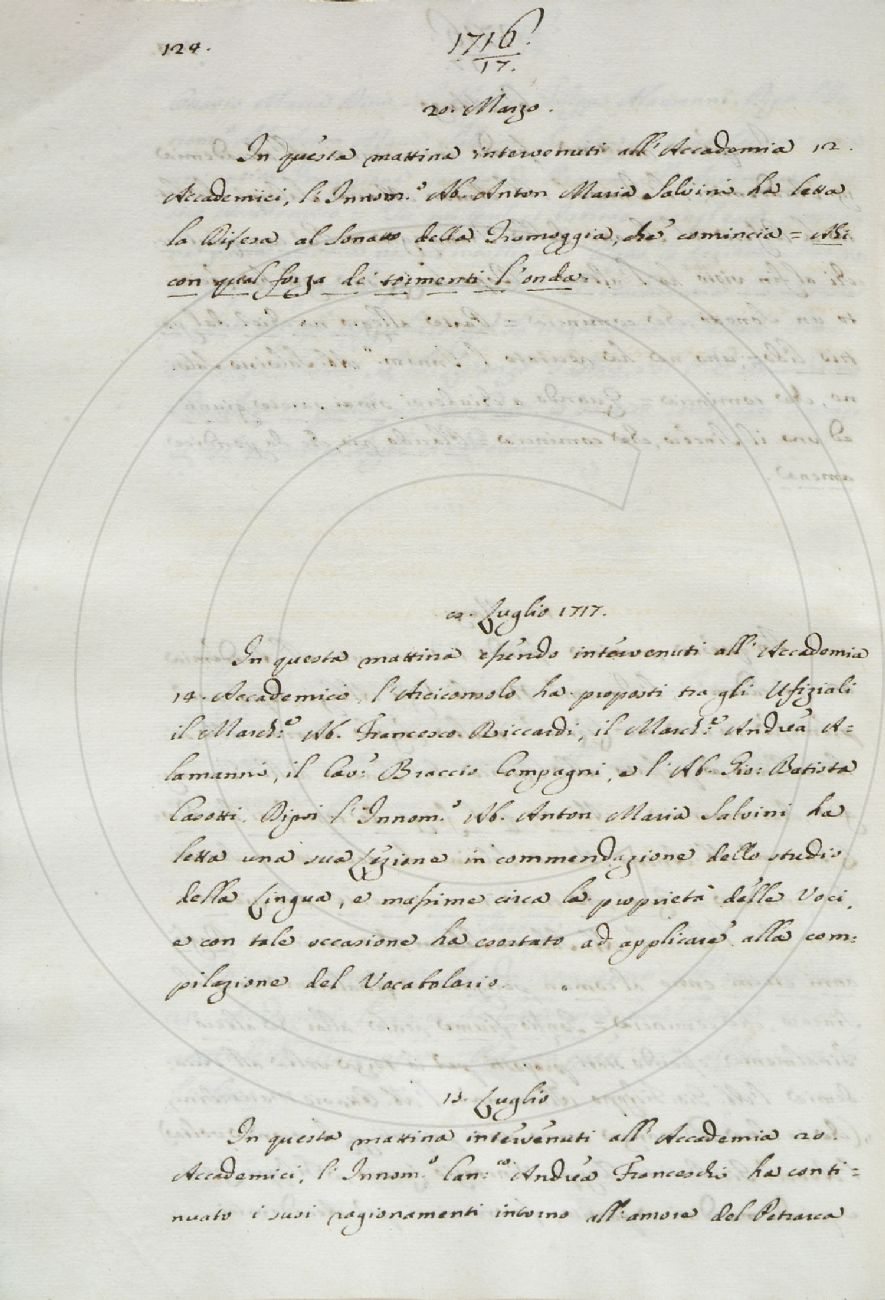 124.
1716
17.
20. Marzo.
In questa mattina intervenuti all'Accademia 12.
Accademici, l'Innom.º Ab. Anton Maria Salvini ha letta
la Difesa al Sonetto della Tramoggia, che comincia =
con qual forza de' tormenti l'onda.
Luglio 1717.
In questa mattina essendo intervenuti all'Accademia
14. Accademici, l'Arciconsolo ha proposti tra gli Ufiziali
il March.º Ab. Francesco Riccardi, il March.º Andrea A=
lamanni, il Cav.º Braccio Compagni, e l'Ab. Gio: Batista
Casotti. Dipoi l'Innom.º Ab. Anton Maria Salvini ha
letta una sua Lezione in commendazione dello studio
della Lingua, e massime circa la proprietà delle Voci,
e con tale occasione ha esortato ad applicare alla com=
pilazione del Vocabolario.
Luglio
In questa mattina intervenuti all'Accademia 20.
Accademici, l'Innom.º Can.co Andrea Franceschi ha conti=
nuato i suoi ragionamenti intorno all'amore del Petrarca